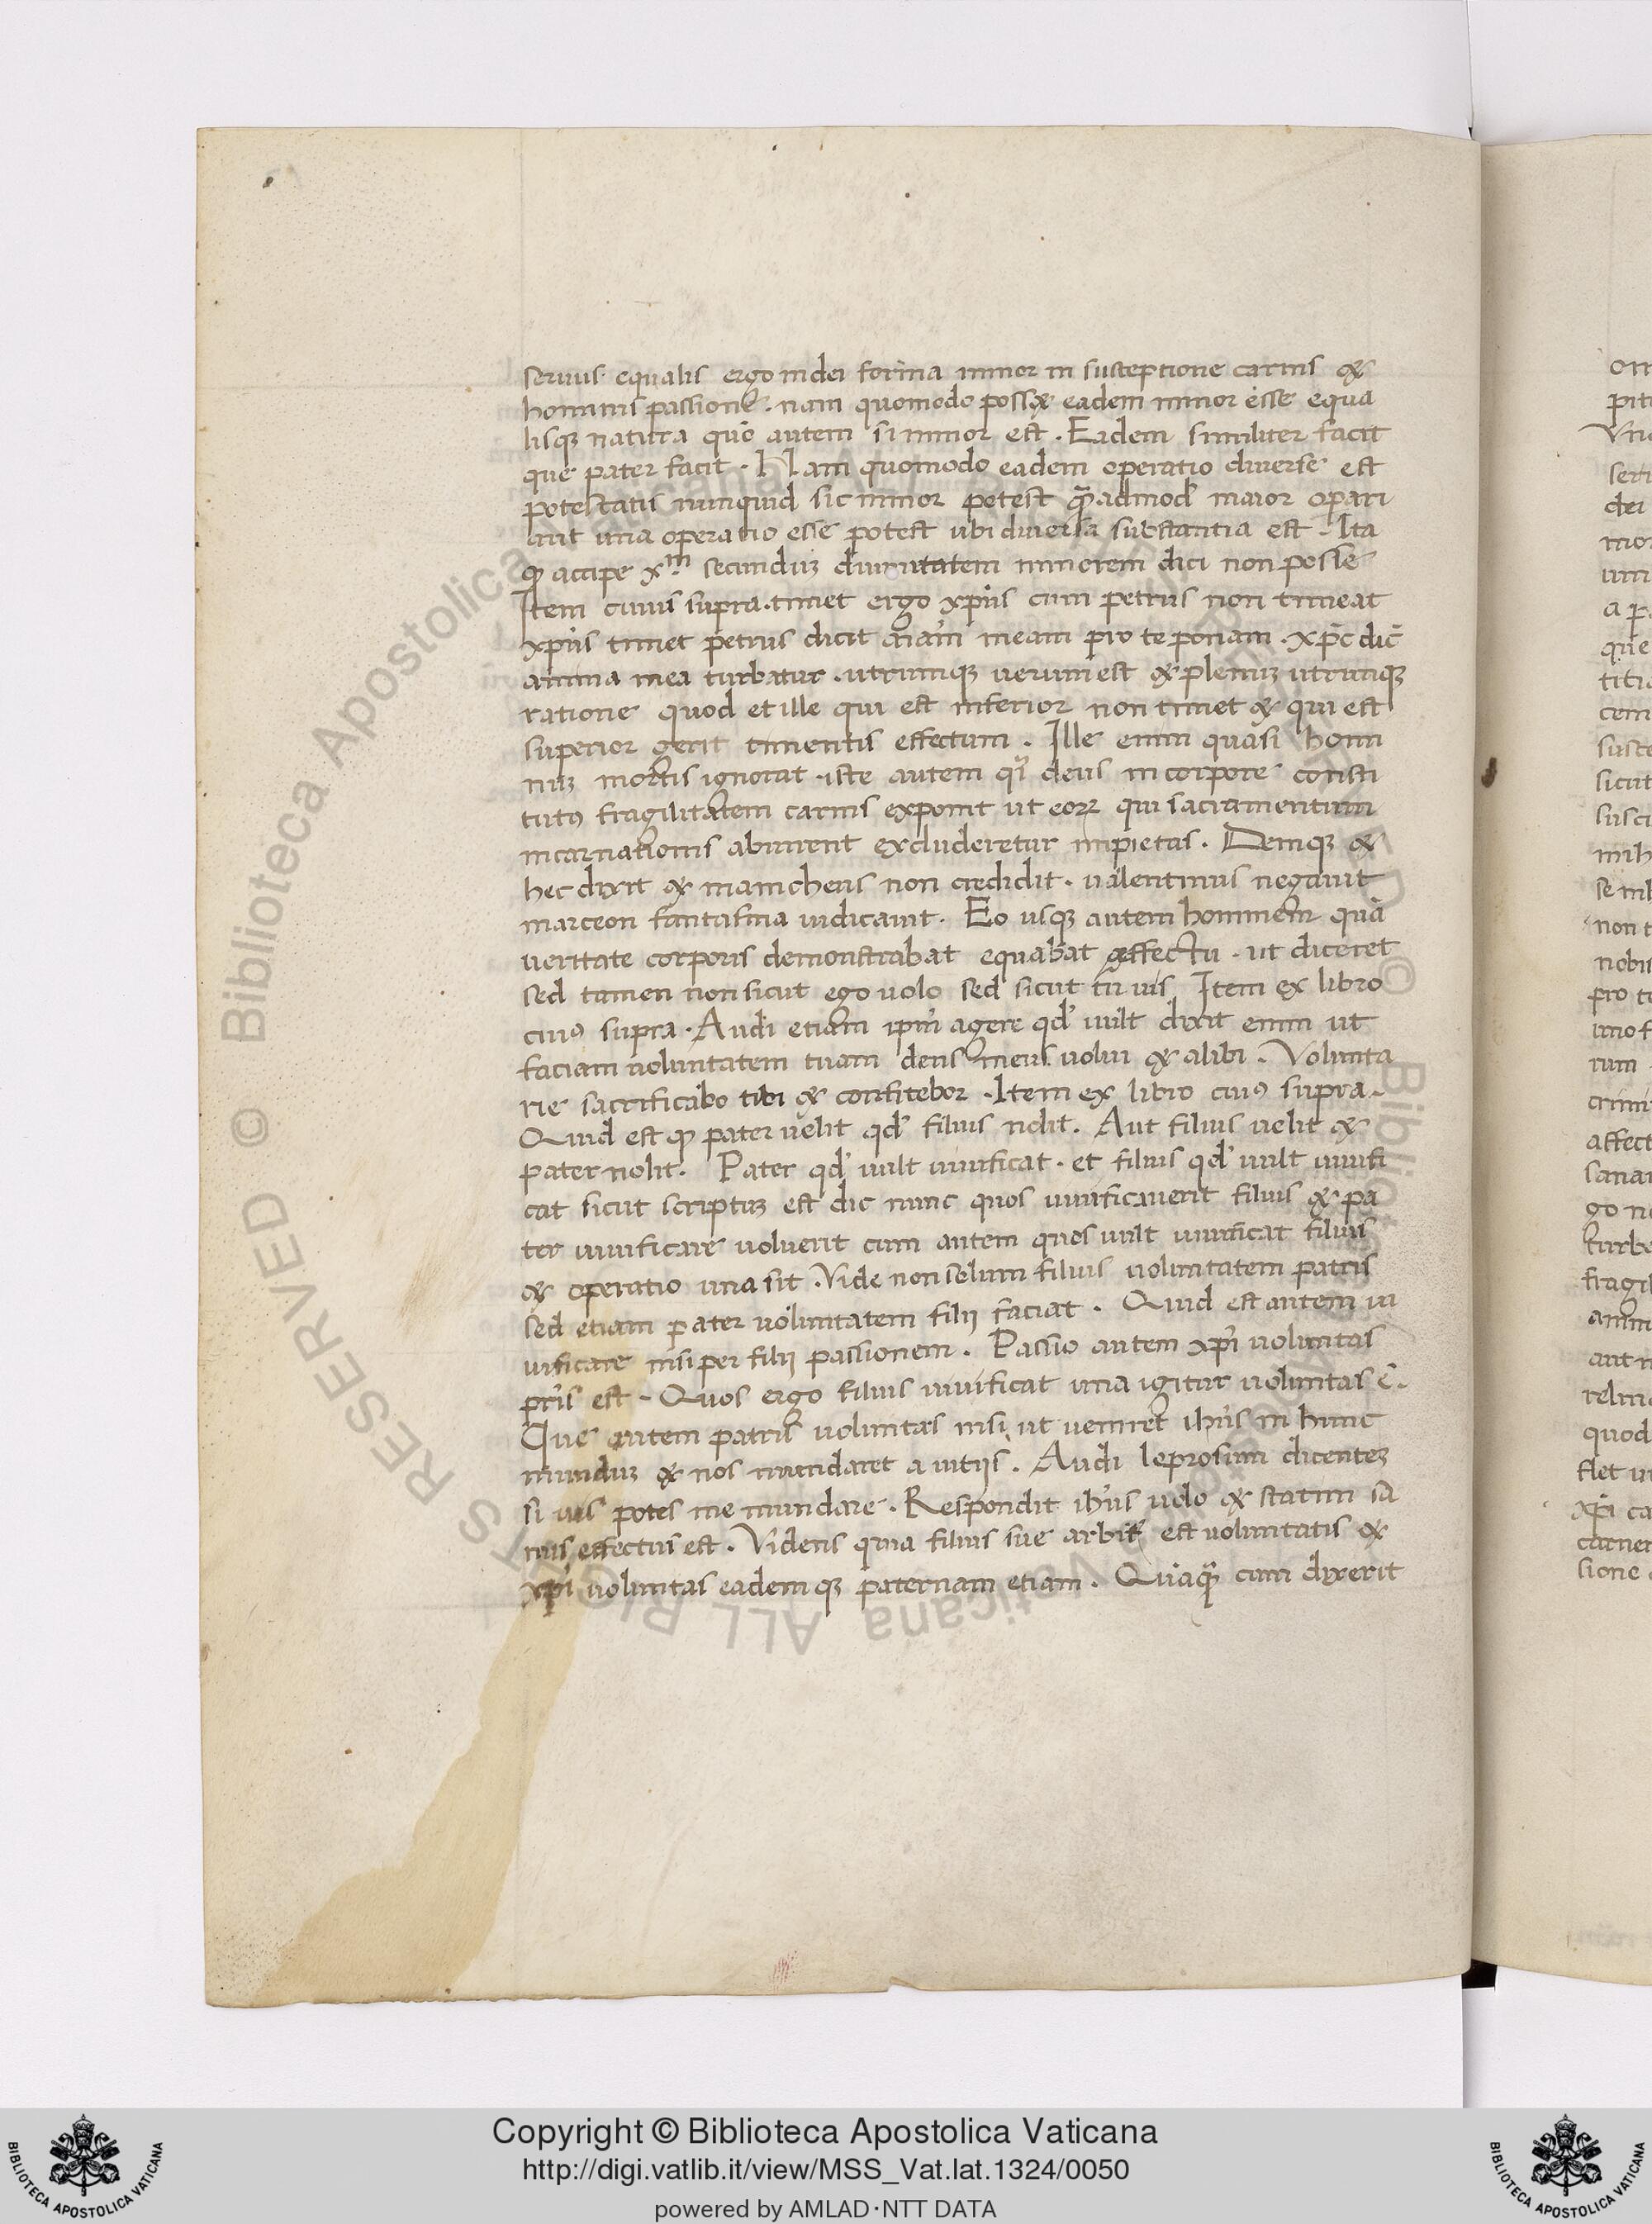 seruus equalis ergo in dei forma minor in susceptione carnis &
hominis passione. nam quomodo poss& eadem minor esse equa
lisq; natura quō autem si minor est. Eadem similiter facit
que pater facit. Nam quomodo eadem operatio diuerse est
potestatis nunquid sic minor potest q̄admod maior opari
aut una operatio esse potest ubi diuersa substantia est. Ita
q; accipe xm secunduz diuinitatem minorem dici non posse
Item cuius supra. timet ergo xpius cum petrus non timeat
xpius timet petrus dicit aīam meam pro te ponam. xpc dic̄
anima mea turbatur. utrumq; uerum est & plenuz utrunq;
ratione quod et ille qui est inferior non timet & qui est
superior gerit timentis effectum. Ille enim quasi homi
nuz mortis ignorat. iste autem qi deus in corpore consti
tut9 fragilitatem carnis exponit ut eoꝝ qui sacramentum
incarnationis abiurent excluderetur impietas. Deniq; &
hec dixit & manicheus non credidit. ualentinus negauit
marceon fantasma iudicauit. Eo usq; autem hominem quā
ueritate corporis demonstrabat equabat &ffectu. ut diceret
sed tamen non sicut ego uolo sed sicut tu uis Item ex libro
cui9 supra. Audi etiam ipm agere qd uult dixit enim ut
faciam uoluntatem tuam deus meus uolui & alibi. Volunta
rie sacrificabo tibi & confitebor. Item ex libro cui9 supra.
Quid est q; pater uelit qd filius nolit. Aut filius uelit &
pater nolit. Pater qd uult uiuificat. et filius qd uult uiuifi
cat sicut scriptuz est dic nunc quos uiuificauerit filius & pa
ter uiuificare uoluerit cum autem quos uult uiuificat filius
& operatio una sit. Vide non solum filius uoluntatem patris
sed etiam pater uoluntatem filij faciat. Quid est autem ui
uificare nisi per filij passionem. Passio autem xpi uoluntas
pris est. Quos ergo filius uiuificat una igitur uoluntas ē.
Que autem patris uoluntas nisi ut ueniret ihus in hunc
munduz & nos mundaret a uitijs. Audi leprosum dicentez
si uis potes me mundare. Respondit ihus uolo & statim sa
nus effectus est. Videns quia filius sue arbit est uoluntatis &
xpi uoluntas eadem q; paternam etiam. Quāq cum dixerit
Copyright © Biblioteca Apostolica Vaticana
http://digi.vatlib.it/view/MSS_Vat.lat.1324/0050
powered by AMLAD·NTT DATA